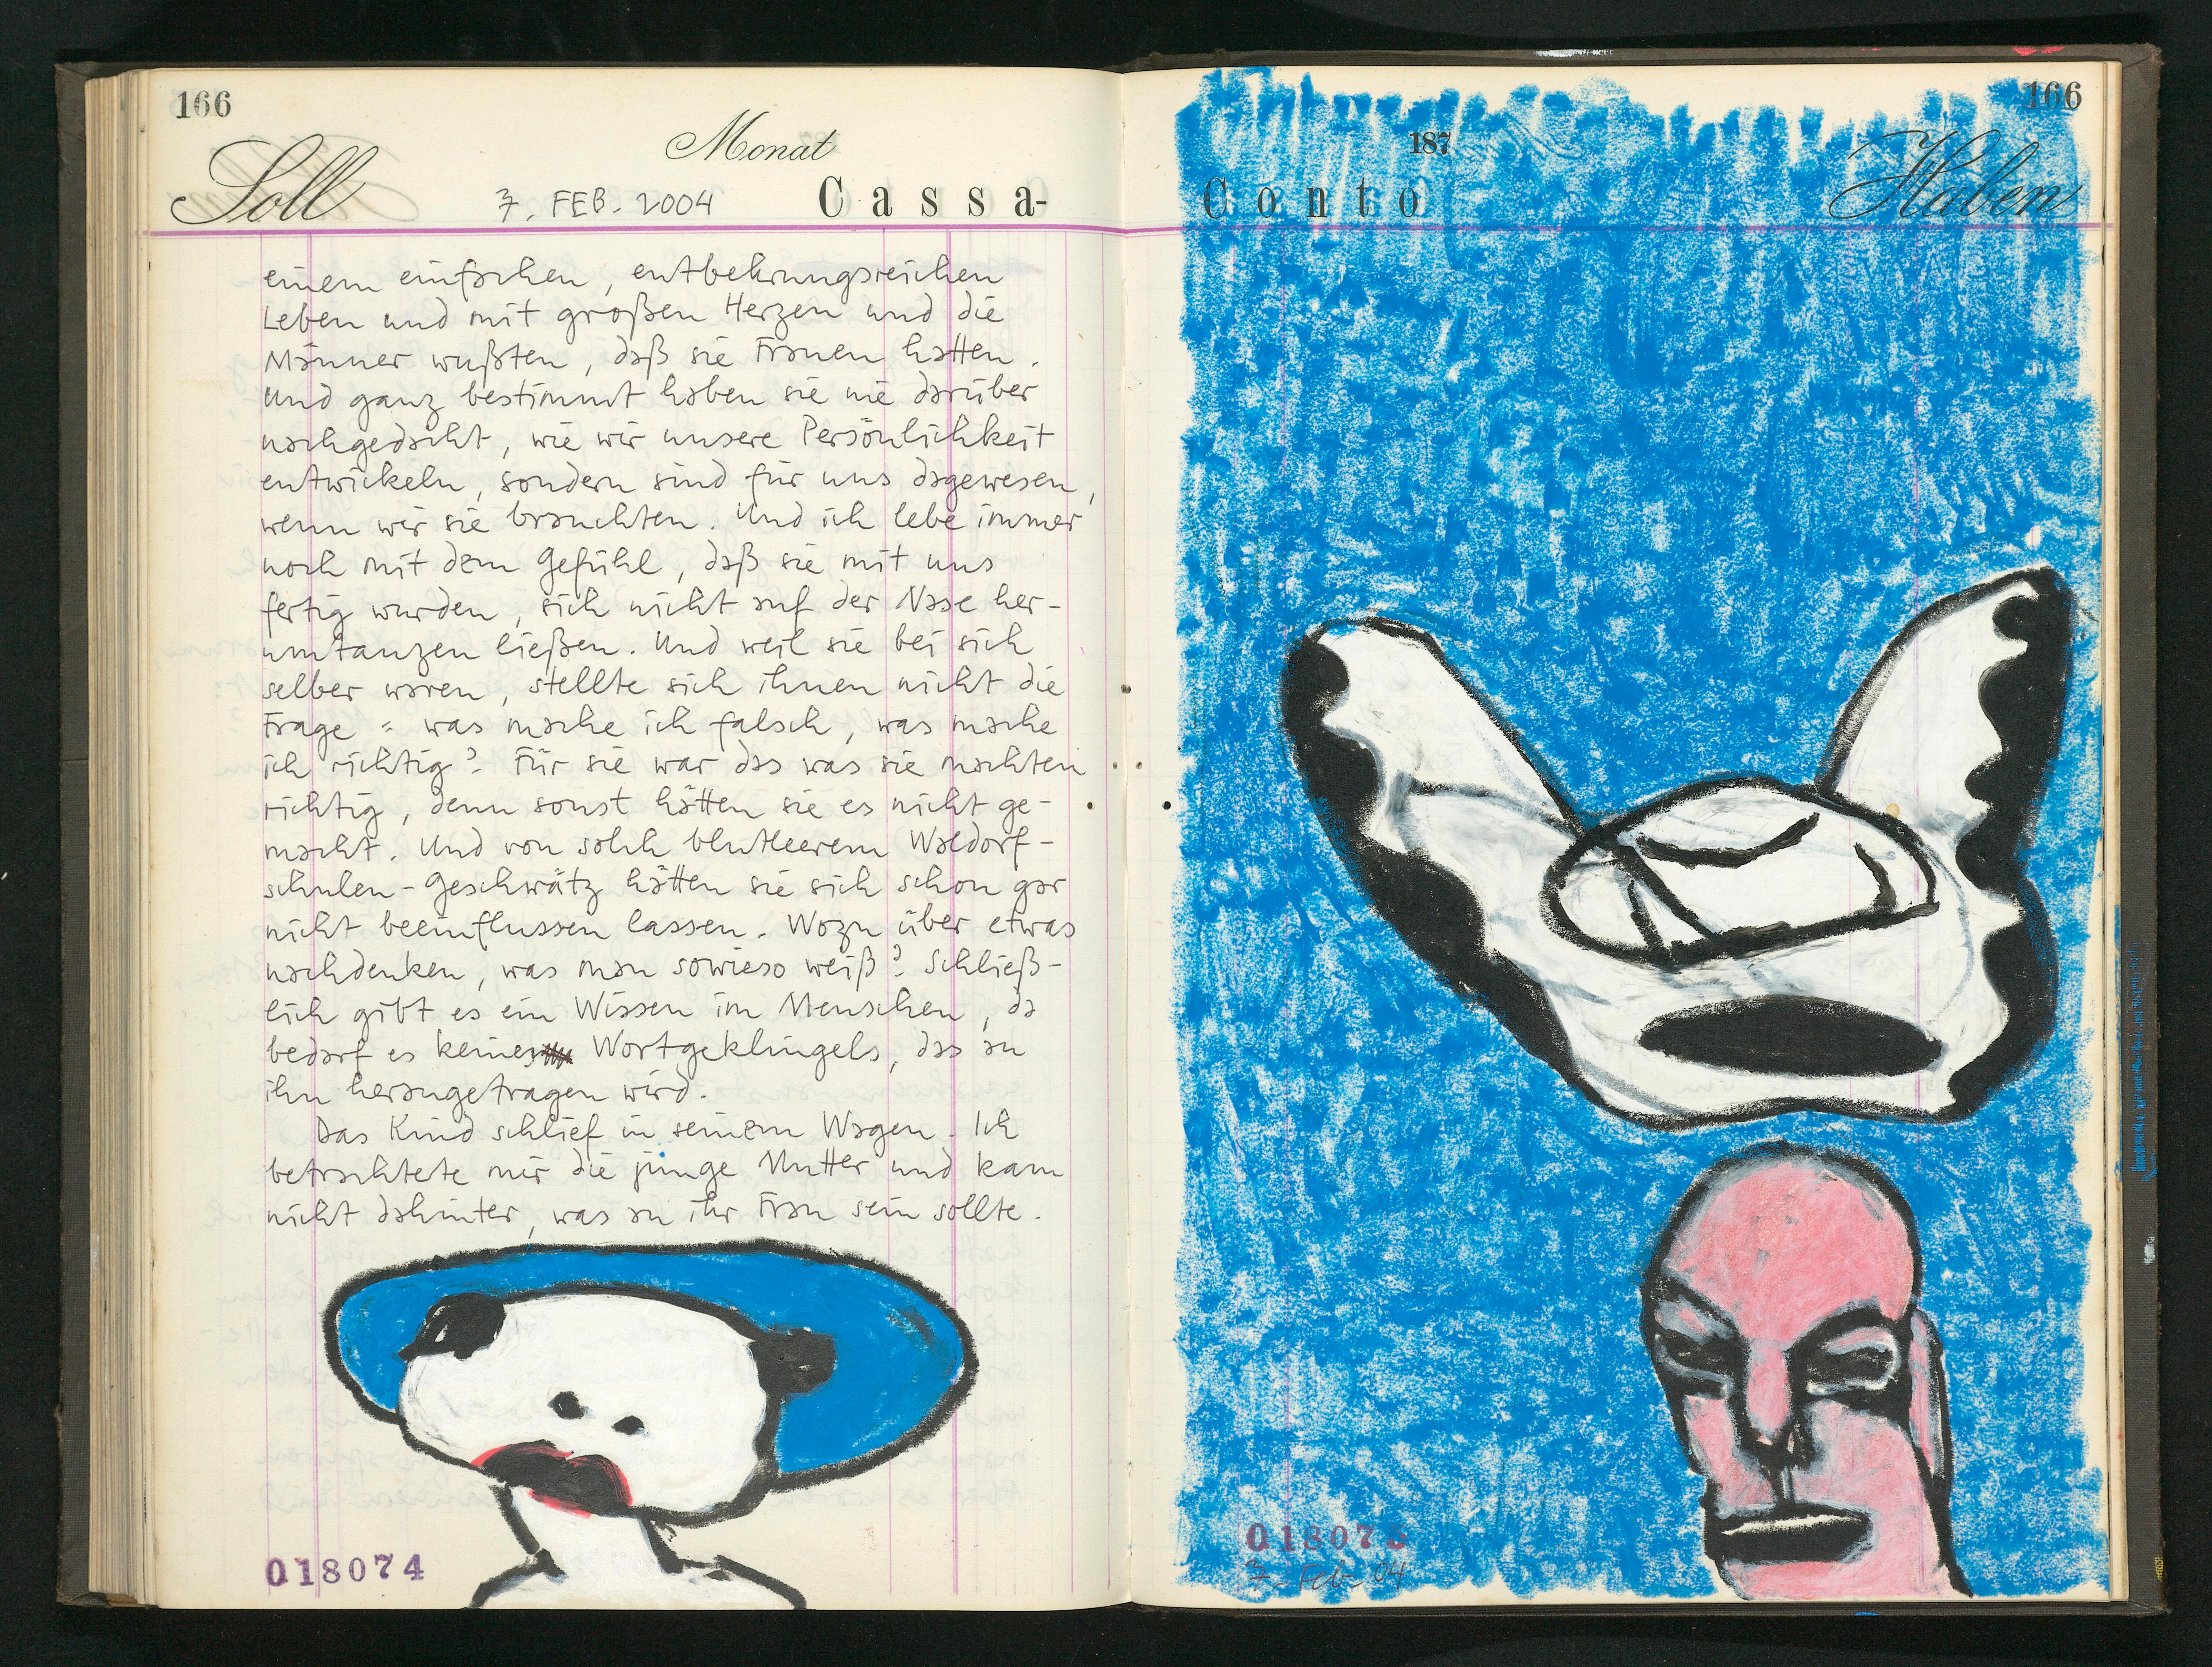 166
Soll
Monat
7. FEB. 2004
Cassa-
einem einfachen, entbehrungsreichen
Leben und mit großen Herzen und die
Männer wußten, daß sie Frauen hatten.
Und ganz bestimmt haben sie nie darüber
nachgedacht, wie wir unsere Persönlichkeit
entwickeln, sondern sind für uns dagewesen,
wenn wir sie brauchten. Und ich lebe immer
noch mit dem Gefühl, daß sie mit uns
fertig wurden, sich nicht auf der Nase her-
umtanzen ließen. Und weil sie bei sich
selber waren, stellte sich ihnen nicht die
Frage: was mache ich falsch, was mache
ich richtig? Für sie war das was sie machten
richtig, denn sonst hätten sie es nicht ge-
macht. Und von solch blutleerem Waldorf-
schulen-Geschwätz hätten sie sich schon gar
nicht beeinflussen lassen. Wozu über etwas
nachdenken, was man sowieso weiß? Schließ-
lich gibt es ein Wissen im Menschen, da
bedarf es keines Wortgeklingels, das an
ihn herangetragen wird.
Das Kind schlief in seinem Wagen. Ich
betrachtete mir die junge Mutter und kam
nicht dahinter, was an ihr Frau sein sollte.
018074
166
187
Conto
Haben
018075
7. Feb. 04